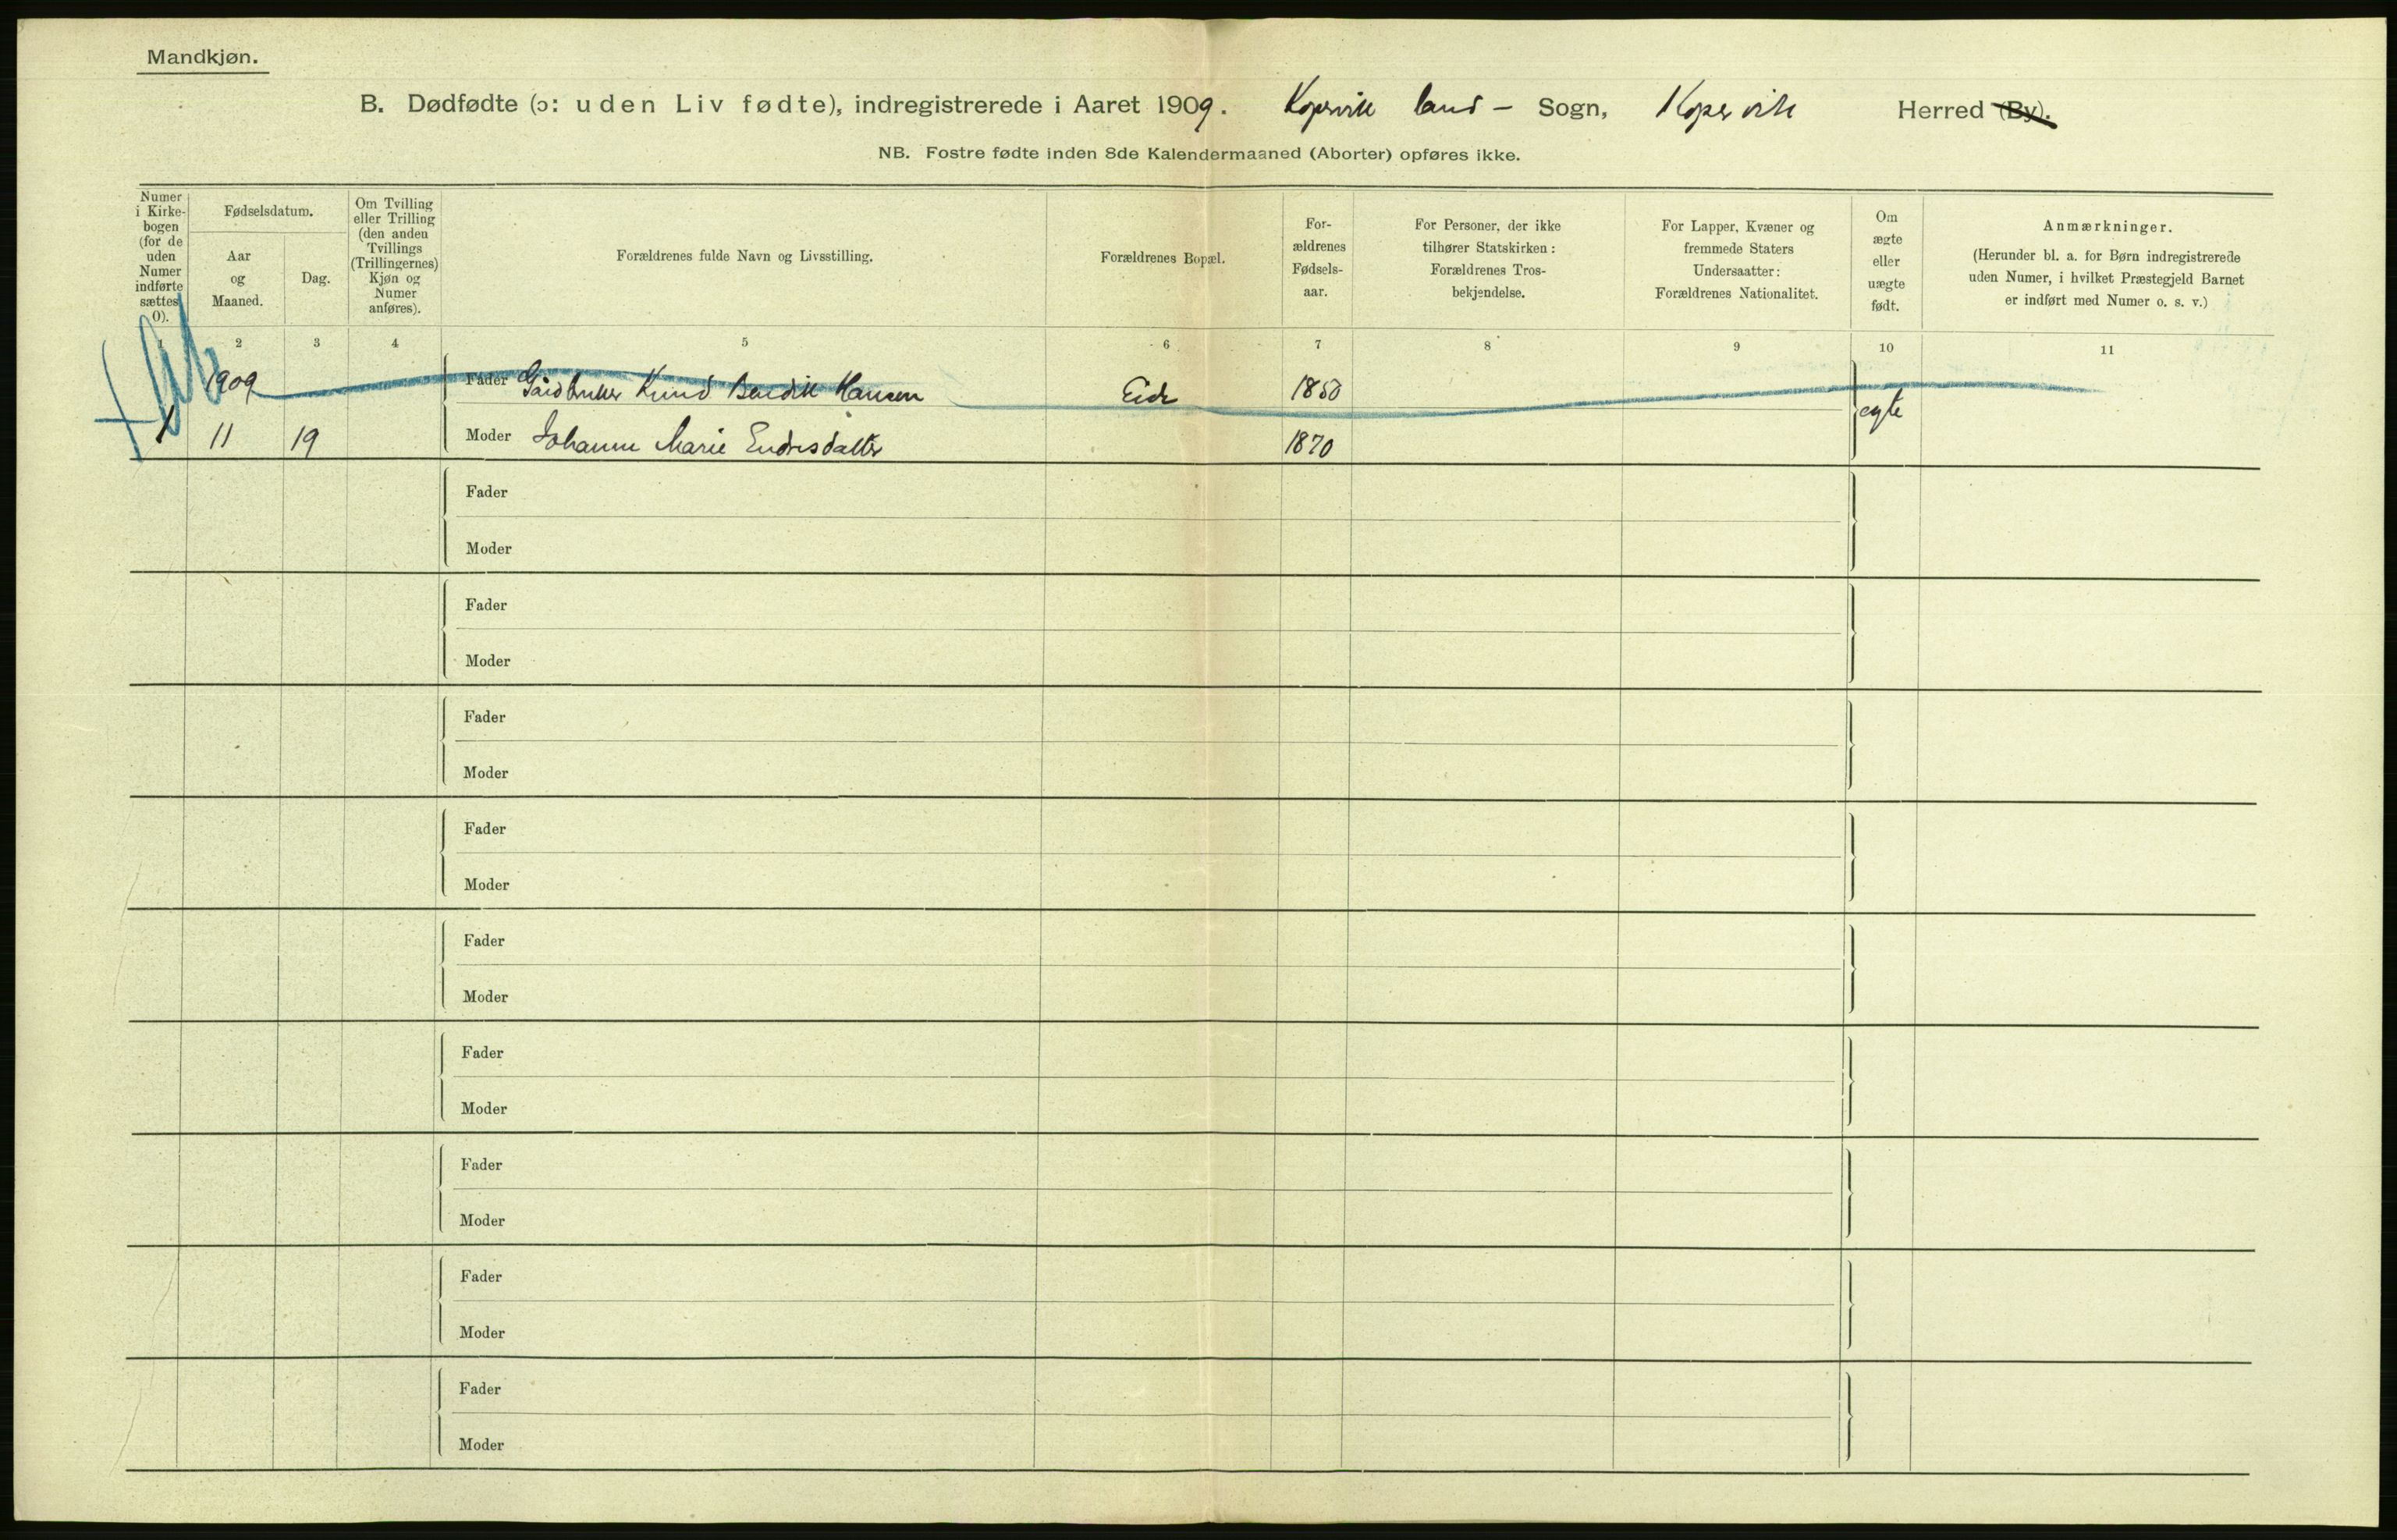 Mandkjøn.
B. Dødfødte (ɔ: uden Liv fødte), indregistrerede i Aaret 1909. Kopervik land - Sogn, Kopervik Herred (By).
NB. Fostre fødte inden 8de Kalendermaaned (Aborter) opføres ikke.
Numer
i Kirke-
bogen
(for de
uden
Numer
indførte
sættes
0).
Fødselsdatum.
Aar
og
Maaned.
Dag.
Om Tvilling
eller Trilling
(den anden
Tvillings
(Trillingernes)
Kjøn og
Numer
anføres).
Forældrenes fulde Navn og Livsstilling.
Forældrenes Bopæl.
For-
ældrenes
Fødsels-
aar.
For Personer, der ikke
tilhører Statskirken:
Forældrenes Tros-
bekjendelse.
For Lapper, Kvæner og
fremmede Staters
Undersaatter:
Forældrenes Nationalitet.
Om
ægte
eller
uægte
født.
Anmærkninger.
(Herunder bl. a. for Børn indregistrerede
uden Numer, i hvilket Præstegjeld Barnet
er indført med Numer o. s. v.)
1 2 3 4 5 6 7 8 9 10 11
1909 Fader Gårdbruker Knud Bendik Hansen Eide 1850 egte
1 11 19 Moder Johanne Marie Endresdatter 1870
Fader
Moder
Fader
Moder
Fader
Moder
Fader
Moder
Fader
Moder
Fader
Moder
Fader
Moder
Fader
Moder
Fader
Moder